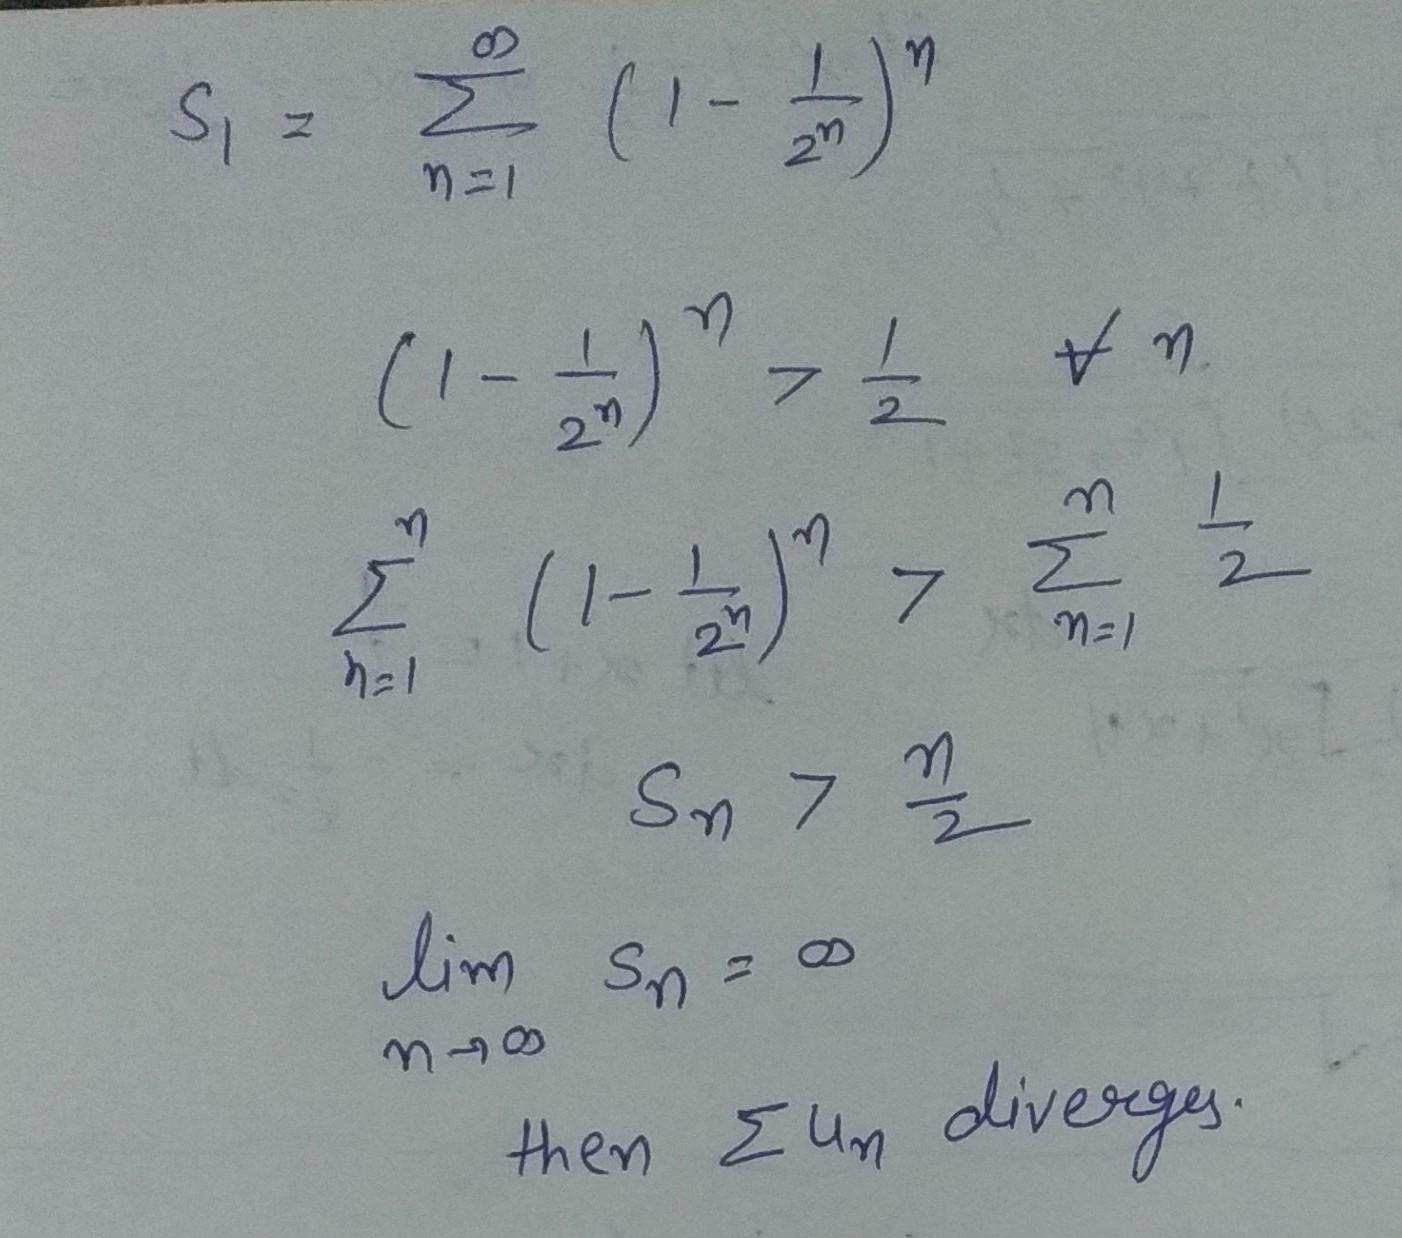 S₁ = ∑_{n=1}^{∞} (1 - 1/2ⁿ)ⁿ
(1 - 1/2ⁿ)ⁿ > 1/2 ∀ n.
∑_{n=1}^{n} (1 - 1/2ⁿ)ⁿ > ∑_{n=1}^{n} 1/2
Sn > n/2
lim_{n→∞} Sn = ∞
then ∑un diverges.